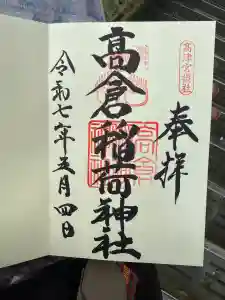 高津宮摂社
奉拝
高倉稲荷神社
高倉
稲荷
令和七年五月四日